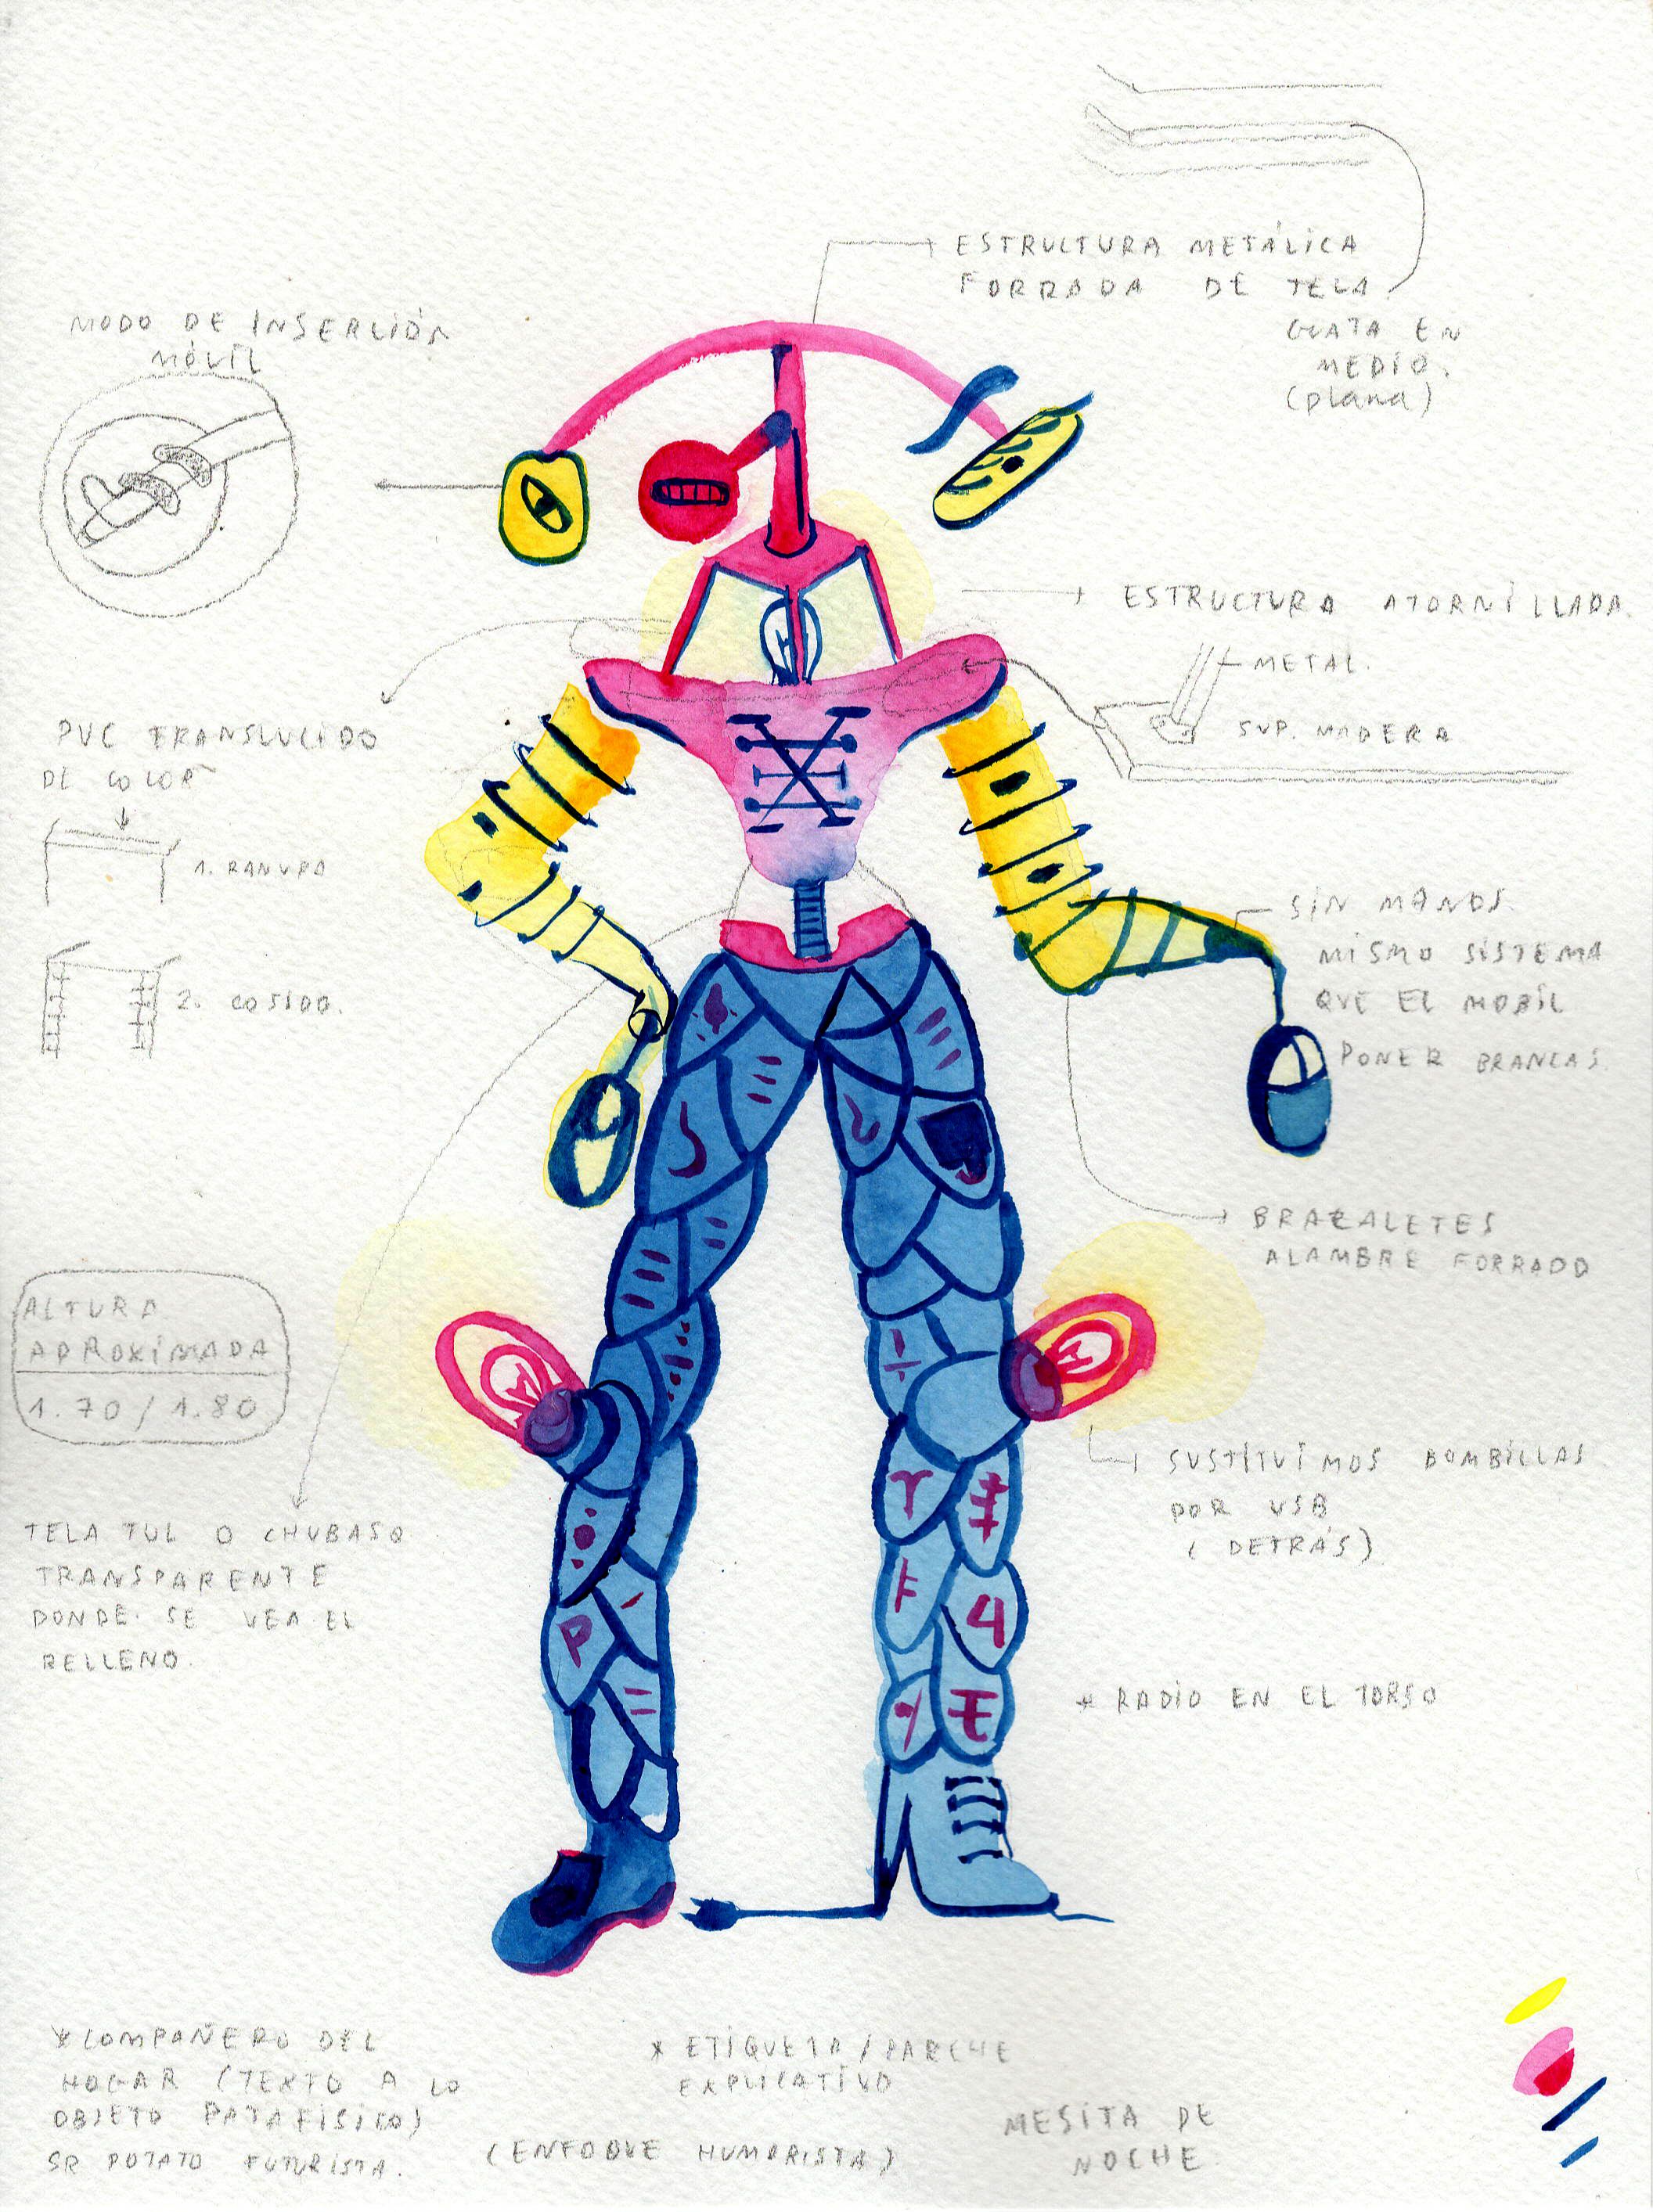 ESTRUCTURA METÁLICA
FORRADA DE TELA
GUATA EN
MEDIO.
(plana)
MODO DE INSERCIÓN
MÓVIL
ESTRUCTURA ATORNILLADA.
METAL.
SUP. MADERA
PVC TRANSLUCIDO
DE COLOR
1. RANURA
2. COSIDO.
SIN MANOS.
MISMO SISTEMA
QUE EL MOBIL
PONER BRANCAS.
BRAZALETES
ALAMBRE FORRADO
ALTURA
APROXIMADA
1.70 / 1.80
SUSTITUIMOS BOMBILLAS
POR USB
(DETRÁS)
TELA TUL O CHUBASQ
TRANSPARENTE
DONDE SE VEA EL
RELLENO.
* RADIO EN EL TORSO
* COMPAÑERO DEL
HOGAR (TEXTO A LO
OBJETO PATAFÍSICO)
SR POTATO FUTURISTA.
* ETIQUETA / PARCHE
EXPLICATIVO
(ENFOQUE HUMORISTA)
MESITA DE
NOCHE